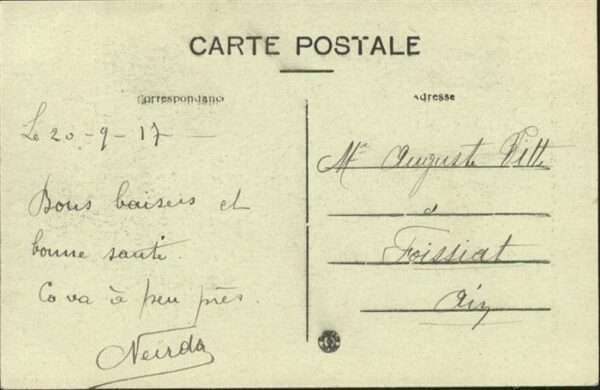 CARTE POSTALE
Correspondance
Le 20-9-17
Bons baisers et
bonne santé.
Ça va à peu près.
Neirda
Adresse
Mr Auguste Vitte
à
Foissiat
Ain